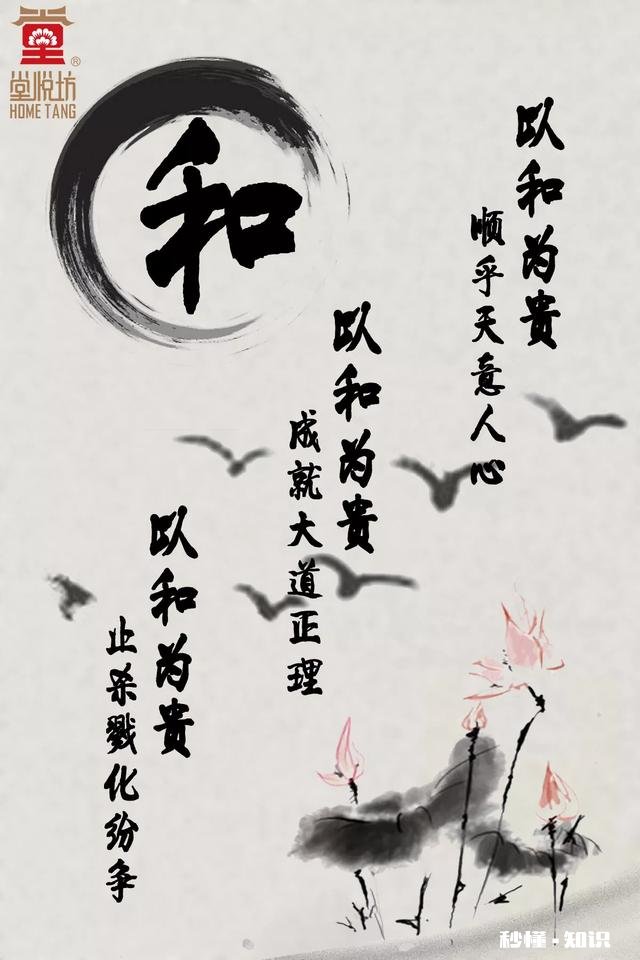 堂
®
堂悦坊
HOME TANG
和
以和为贵
顺乎天意人心
以和为贵
成就大道正理
以和为贵
止杀戮化纷争
秒懂·知识